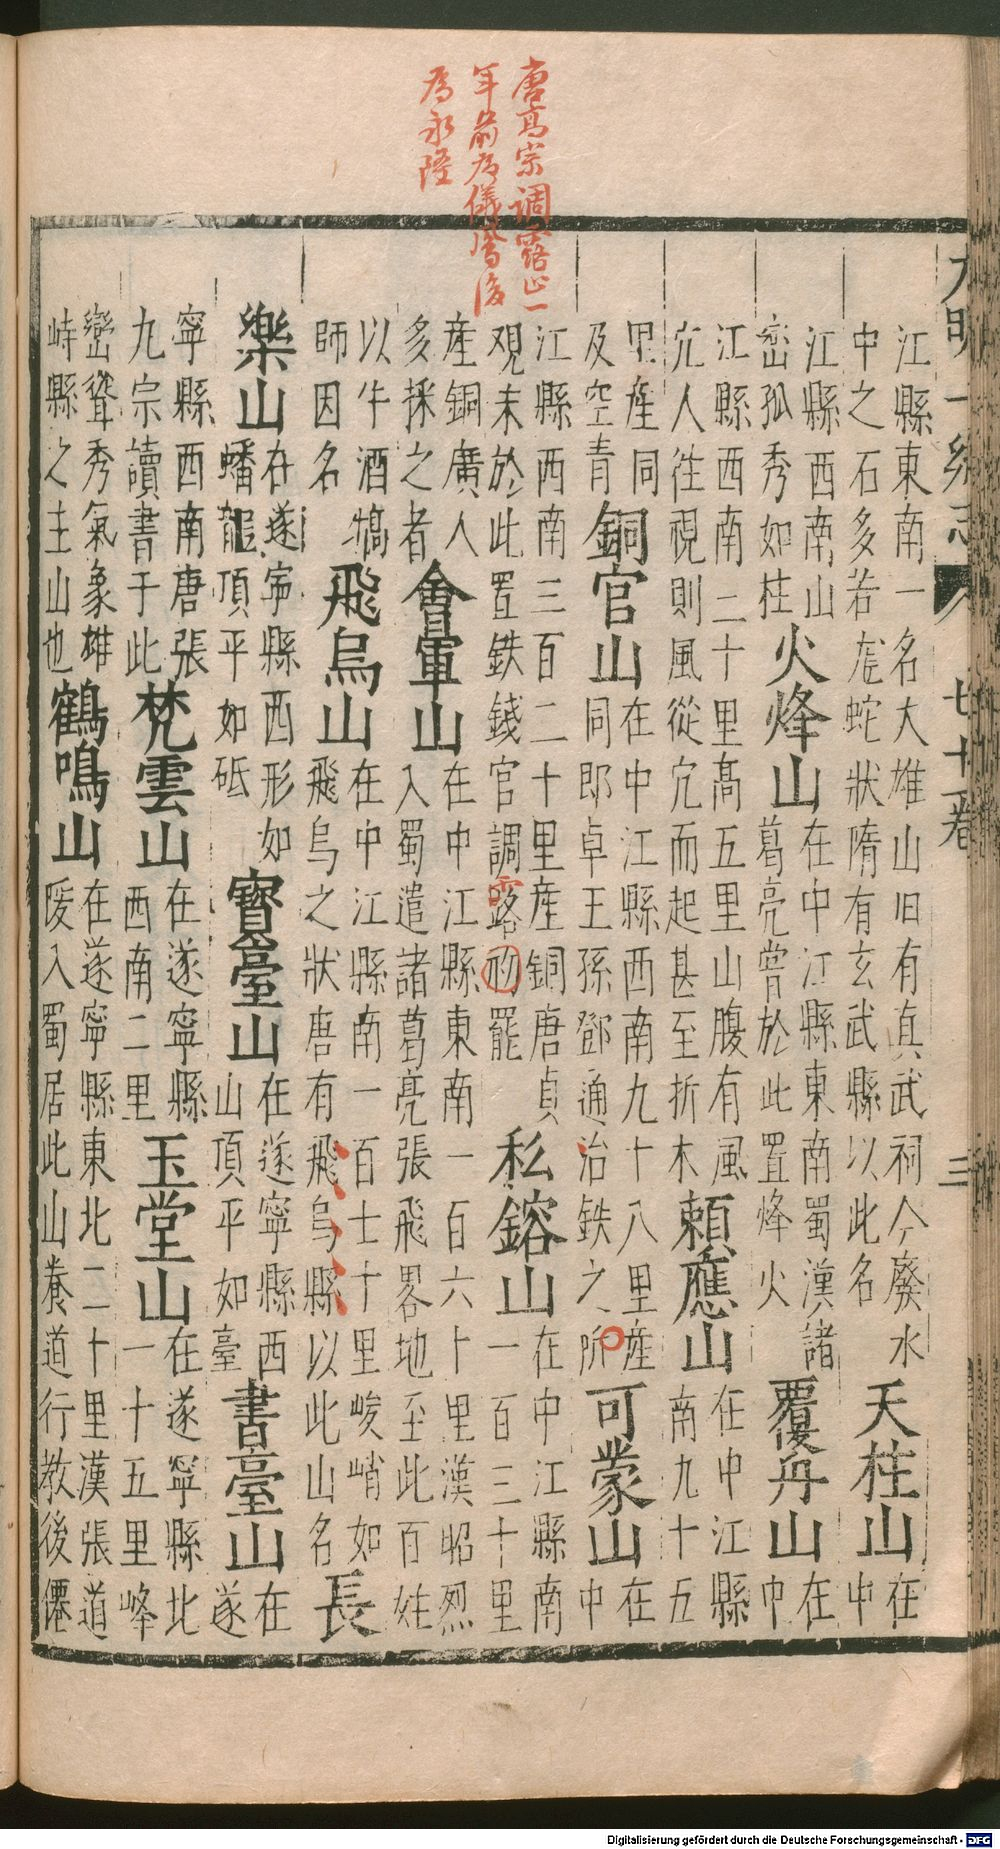 唐高宗调露止一
年前为儀鳳後
为永隆
大明一統志 七十一卷 三
江縣東南一名大雄山旧有真武祠今廢水
中之石多若龙蛇狀隋有玄武縣以此名
天柱山
在
中
江縣西南山
峦孤秀如柱
火烽山
在中江縣東南蜀漢諸
葛亮曾於此置烽火
覆舟山
在
中
江縣西南二十里高五里山腹有風
穴人往視則風從穴而起甚至折木
賴應山
在中江縣
南九十五
里産同
及空青
銅官山
在中江縣西南九十八里産
同郎卓王孫鄧通治鉄之所
可蒙山
在
中
江縣西南三百二十里産銅唐貞
观末於此置鉄錢官調露初罷
私鎔山
在中江縣南
一百三十里
産銅廣人
多採之者
會軍山
在中江縣東南一百六十里漢昭烈
入蜀遣諸葛亮張飛畧地至此百姓
以牛酒犒
師因名
飛烏山
在中江縣南一百士十里峻峭如
飛烏之狀唐有飛烏縣以此山名
長
樂山
在遂寧縣西形如
蟠龍頂平如砥
寶臺山
在遂寧縣西
山頂平如臺
書臺山
在
遂
寧縣西南唐張
九宗讀書于此
梵雲山
在遂寧縣
西南二里
玉堂山
在遂寧縣北
一十五里峰
巒聳秀氣象雄
峙縣之主山也
鶴鳴山
在遂寧縣東北二十里漢張道
陵入蜀居此山養道行教後僊
Digitalisierung gefördert durch die Deutsche Forschungsgemeinschaft - DFG